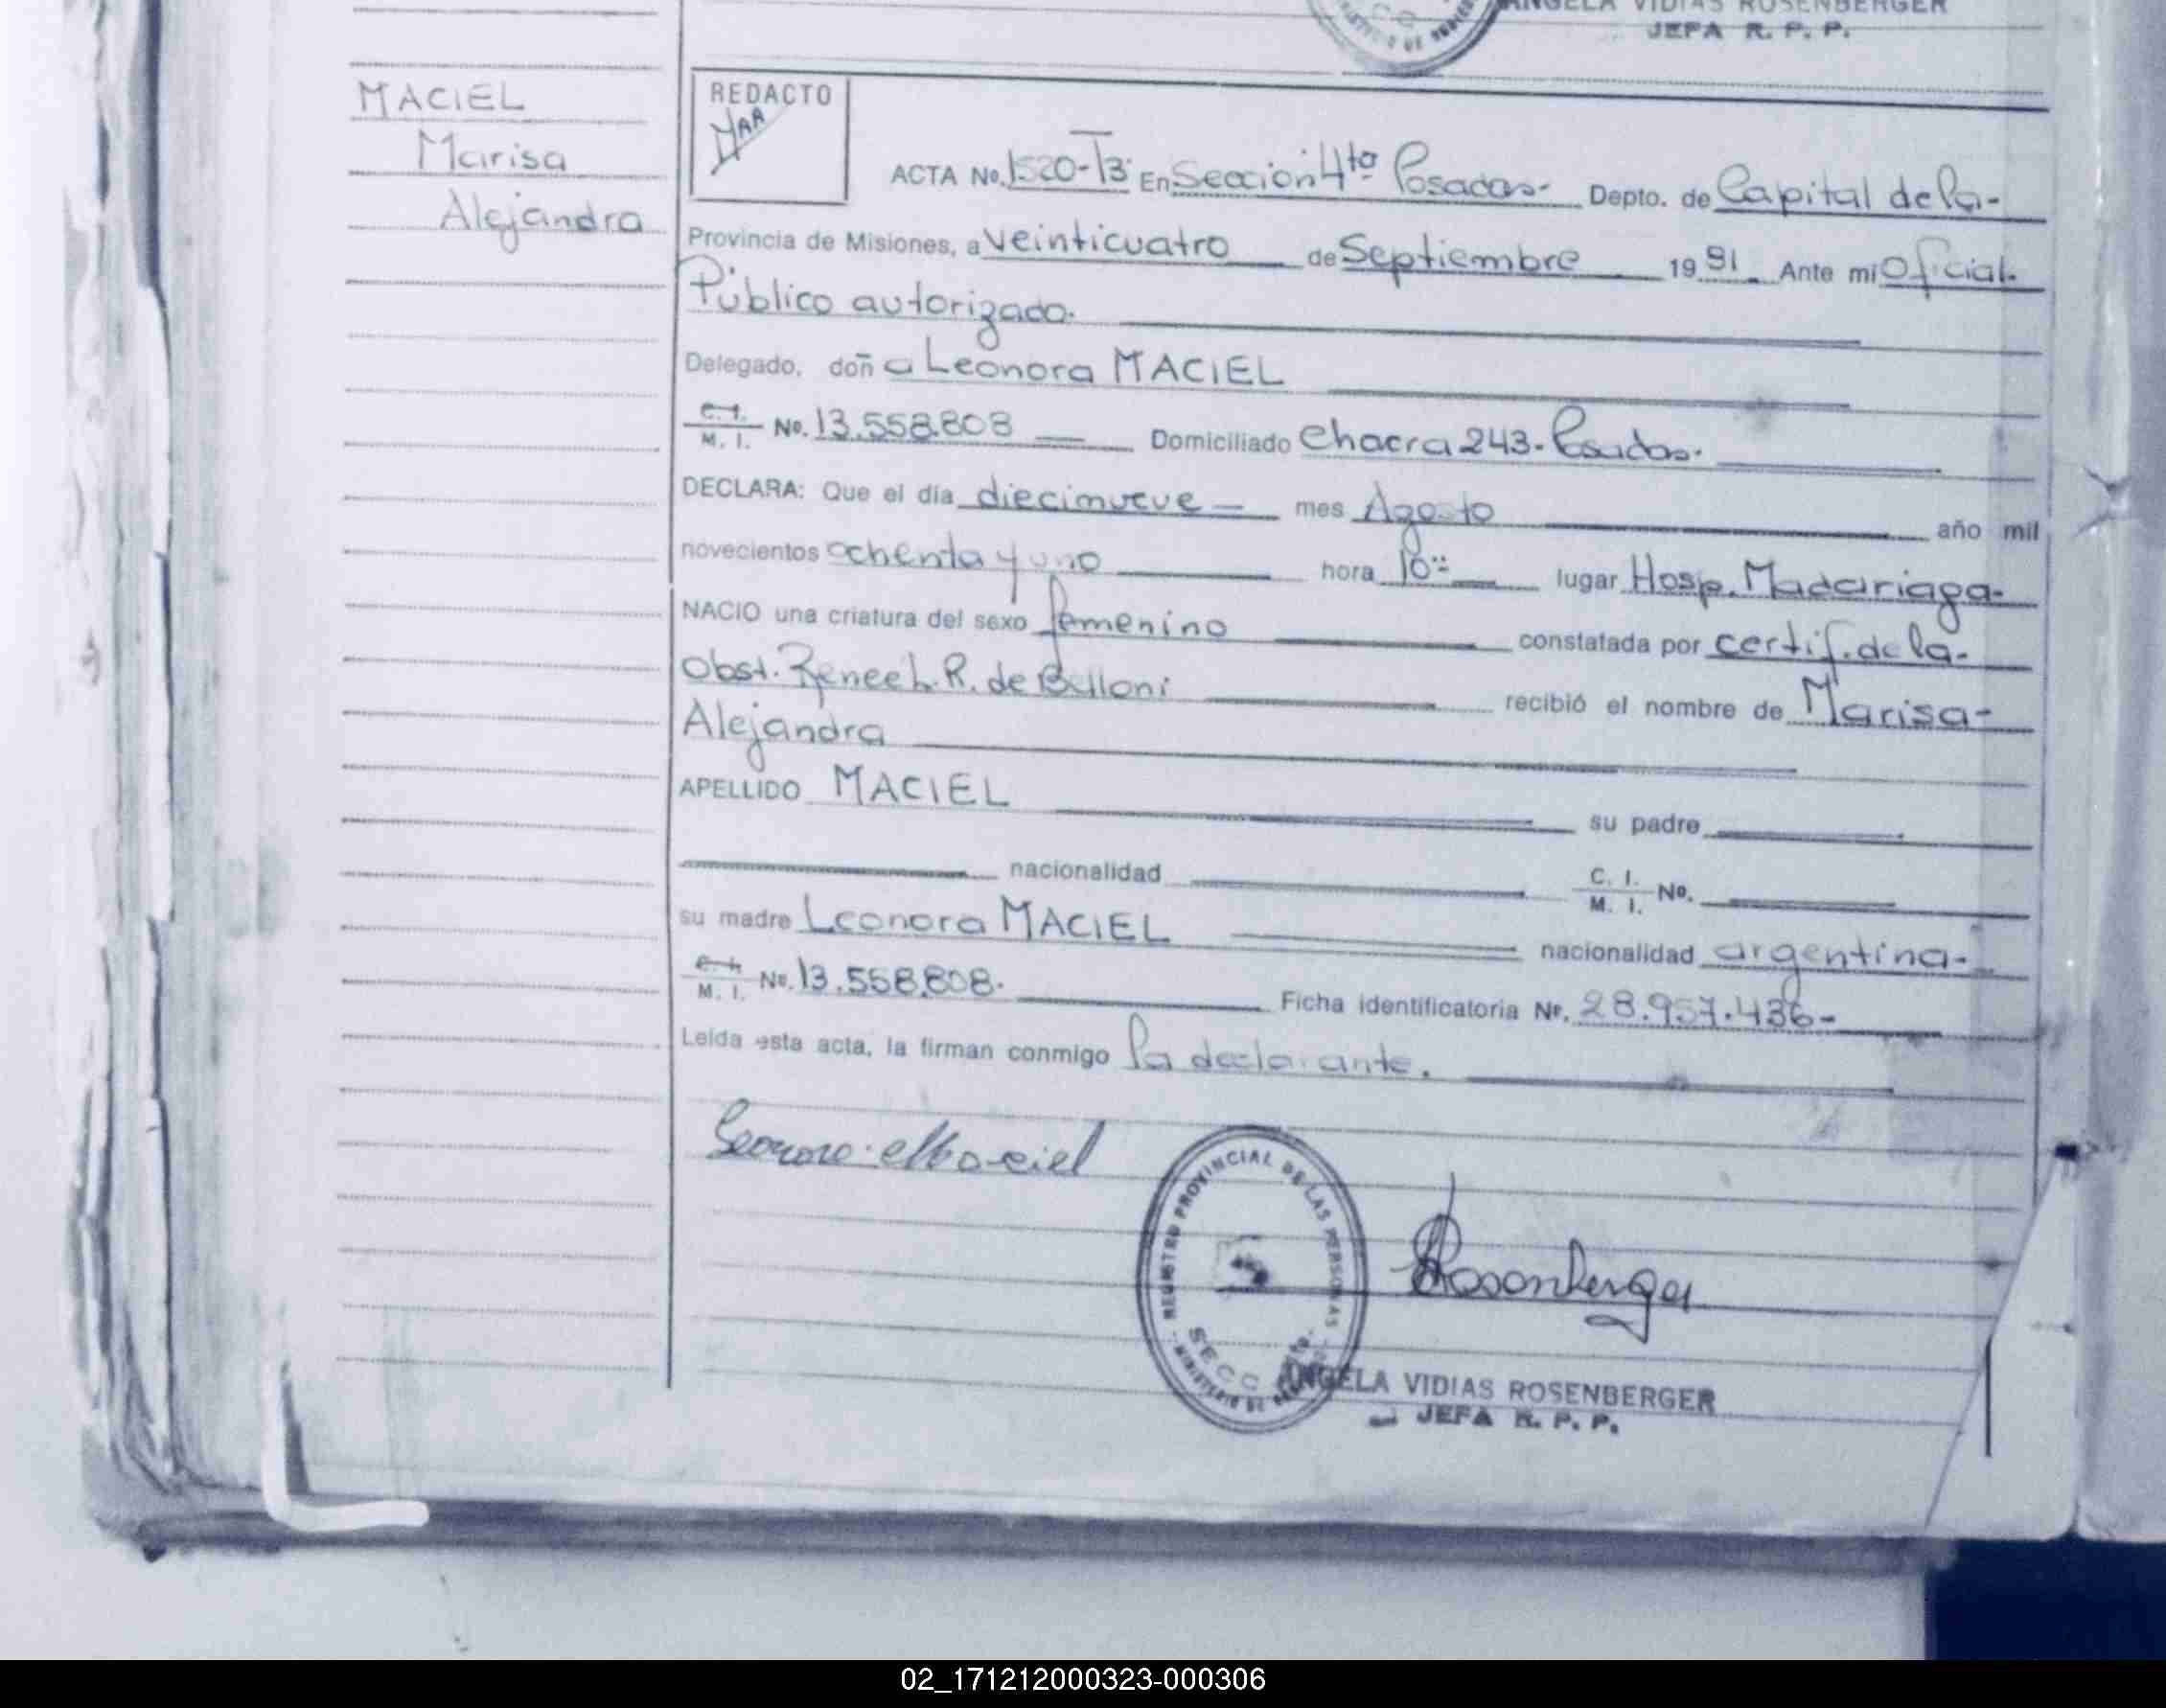 ANGELA VIDIAS ROSENBERGER
JEFA R. P. P.
MACIEL
Marisa
Alejandra
REDACTO
ACTA No. 1520-T3- En Sección 4ta Posadas- Depto. de Capital de la-
Provincia de Misiones, a veinticuatro de Septiembre 19 81 Ante mi Oficial
Público autorizado.
Delegado, doña Leonora MACIEL
C. I. M. I. No. 13.558.808 Domiciliado Chacra 243- Posadas-
DECLARA: Que el día diecinueve mes Agosto año mil
novecientos ochenta y uno hora 10 lugar Hosp. Madariaga-
NACIO una criatura del sexo femenino constatada por certif. de la-
Obst. Renee L. R. de Belloni recibió el nombre de Marisa-
Alejandra
APELLIDO MACIEL su padre
nacionalidad C. I. M. I. No.
su madre Leonora MACIEL nacionalidad argentina-
C. I. M. I. No. 13.558.808. Ficha identificatoria Nr. 28.957.436-
Leída esta acta, la firman conmigo la declarante.
Leonora Maciel
REGISTRO PROVINCIAL DE LAS PERSONAS
SECC
MINISTERIO DE
Rosenberger
ANGELA VIDIAS ROSENBERGER
JEFA R. P. P.
02_171212000323-000306